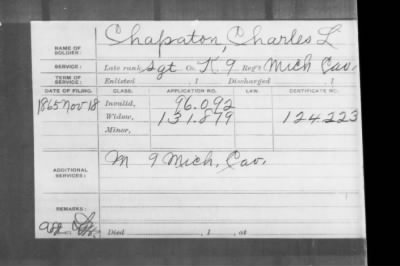 NAME OF SOLDIER: Chapaton, Charles L
SERVICE: Late rank, Sgt Co. K 9 Reg't Mich Cav,
TERM OF SERVICE: Enlisted , 1 Discharged , 1
DATE OF FILING. CLASS. APPLICATION NO. LAW. CERTIFICATE NO.
1865 Nov 18 Invalid, 96.092
Widow, 131.879 124.223
Minor,
ADDITIONAL SERVICES: M 9 Mich, Cav,
REMARKS:
Died , 1 , at